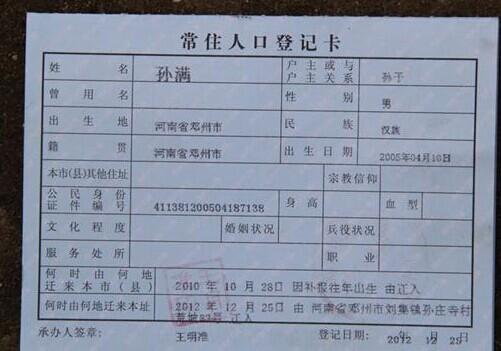 常住人口登记卡
姓名 孙满 户主或与户主关系 孙子
曾用名 性别 男
出生地 河南省邓州市 民族 汉族
籍贯 河南省邓州市 出生日期 2005年04月18日
本市(县)其他住址 宗教信仰
公民身份证件编号 411381200504187138 身高 血型
文化程度 婚姻状况 兵役状况
服务处所 职业
何时由何地迁来本市(县) 2010 年 10 月 28日 因补报往年出生 由迁入
何时由何地迁来本址 2012 年 12 月 25日 由 河南省邓州市刘集镇孙庄寺村
83号 迁入
承办人签章: 王明准 登记日期: 2012 年 12 月 25 日